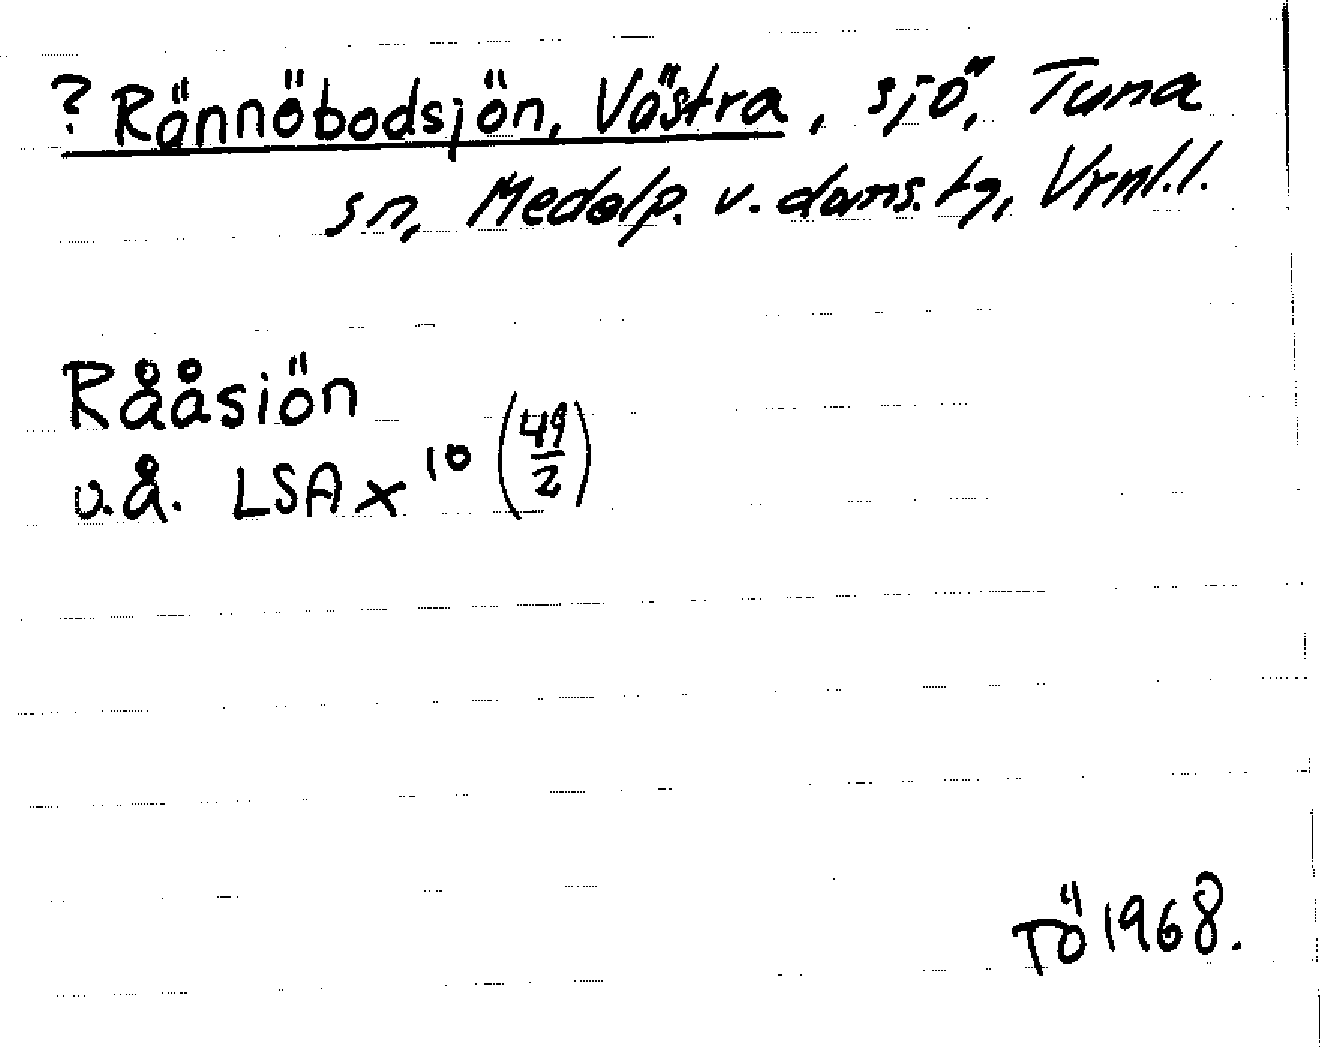 ? Rännöbodsjön, Västra, sjö, Tuna
sn, Medelp. v. doms. tg, Vrml.l.
Rååsiön
u.å. LSA x 10 (49/2)
TÖ 1968.